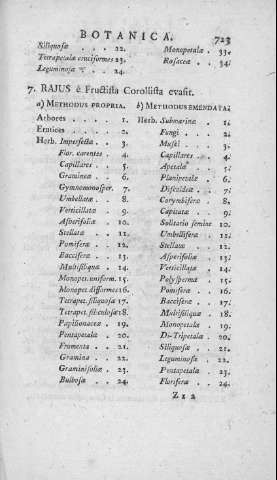 BOTANICA. 723
Siliquosæ . . . 22. Monopetalæ . 33.
Tetrapetalæ cruciformes 23. Rosaceæ . . 34.
Leguminosæ . . 24.
7. RAJUS è Fructista Corollista evasit.
a) METHODUS PROPRIA. b) METHODUS EMENDATA:
Arbores . . . . 1. Herb. Submarinæ . 1.
Fungi . . . 2.
Herb. Imperfectæ . . 3. Musci . . . 3.
Flor. carentes . 4. Capillares . . 4.
Capillares . . . 5. Apetalæ . . 5.
Gramineæ . . . 6. Planipetalæ . 6.
Gymnomonosper. 7. Discoideæ . . 7.
Umbellatæ . . 8. Corymbiferæ . 8.
Verticillatæ . . 9. Capitatæ . . 9.
Asperifoliæ . . 10. Solitario semine 10.
Stellatæ . . . 11. Umbelliferæ . 11.
Pomiferæ . . . 12. Stellatæ . . 12.
Bacciferæ . . . 13. Asperifoliæ . 13.
Multisiliquæ . . 14. Verticillatæ . 14.
Monopet. uniform. 15. Polyspermæ . 15.
Monopet. difformes 16. Pomiferæ . . 16.
Tetrapet. siliquosæ 17. Bacciferæ . . 17.
Tetrapet. siliculosæ 18. Multisiliquæ . 18.
Papilionaceæ . . 19. Monopetalæ . 19.
Pentapetalæ . . 20. Di-Tripetalæ . 20.
Frumenta . . . 21. Siliquosæ . . 21.
Gramina . . . 22. Leguminosæ . 22.
Graminifoliæ . . 23. Pentapetalæ . 23.
Bulbosæ . . . 24. Floriferæ . . 24.
Zz 2